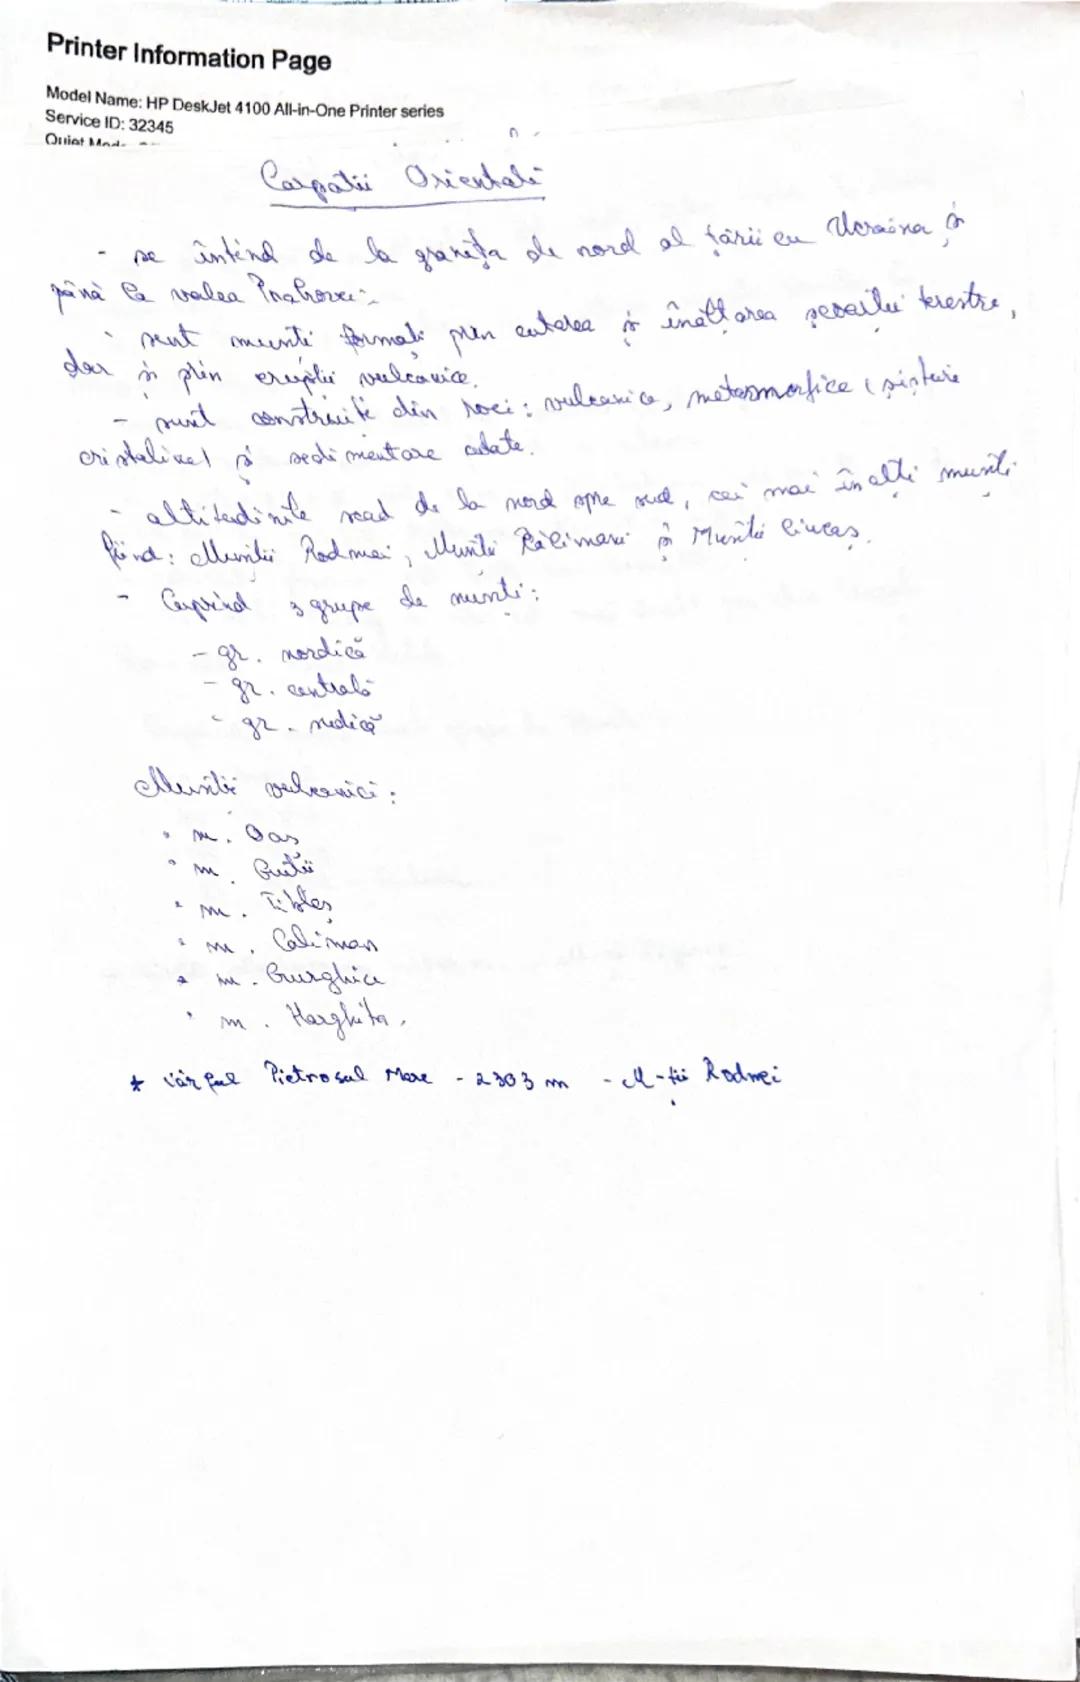 Printer Information Page
Model Name: HP DeskJet 4100 All-in-One Printer series
Service ID: 32345
Quiet Mode
Carpații Orientali
- se întind de la granița de nord al țării cu Ucraina și
până la valea Prahovei
- sunt munți formați prin cutarea și înălțarea scoarței terestre,
dar și prin erupții vulcanice.
- sunt construite din roci: vulcanice, metasmorfice (șisturi
cristaline) și sedimentare cutate.
- altitudinile scad de la nord spre sud, cei mai înalți munți
fiind: Munții Rodnei, Munții Călimani și Munții Ciucaș.
- Cuprind 3 grupe de munți:
- gr. nordică
- gr. centrală
- gr. sudică
Munții vulcanici:
• m. Oaș
• m. Gutâi
• m. Țibleș
• m. Caliman
• m. Gurghiu
• m. Harghita.
* vârful Pietrosul Mare - 2303 m - M-ții Rodnei